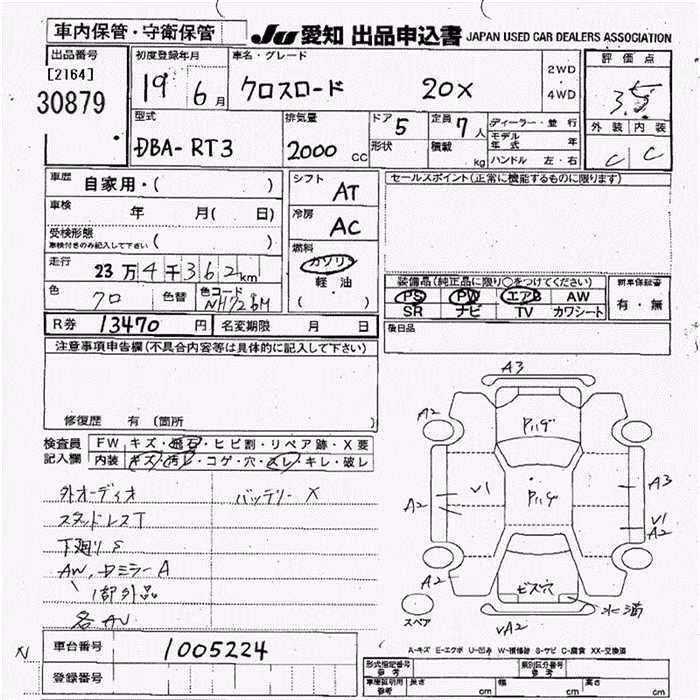 車内保管・守衛保管
JU 愛知 出品申込書 JAPAN USED CAR DEALERS ASSOCIATION
出品番号
[2164]
30879
初度登録年月
19 6月
車名・グレード
クロスロード 20X
2WD
4WD
評価点
3.5
外装 内装
C C
型式
DBA-RT3
排気量
2000 cc
ドア 5
形状
定員 7人
積載 kg
ディーラー・並行
モデル年式 年
ハンドル 左・右
車歴
自家用・( )
車検 年 月( 日)
受検形態
車検付きのみ記入して下さい ( )
走行 23万4千362km
色 クロ 色替 色コード NH728M
R券 13470円 名変期限 月 日
シフト AT
冷房 AC
燃料
ガソリン
軽・油
( )
セールスポイント(正常に機能するものに限ります)
装備品(純正品に限り○をつけてください)
PS PW エアB AW
SR ナビ TV カワシート
新車保証書
有・無
後日品
注意事項申告欄(不具合内容等は具体的に記入して下さい)
修復歴 有 (箇所 )
検査員記入欄
FW キズ・飛石・ヒビ割・リペア跡・X要
内装 キズ・汚レ・コゲ・穴・スレ・キレ・破レ
外オーディオ バッテリーX
スタッドレスT
下廻りS
AW、ドミラーA
1部外品
各AU
車台番号 1005224
登録番号
A3
A2
Pハゲ
A2
V1
Pハゲ
A3
V1
A2
A2
ビス穴
スペア
VA2
A-キズ E-エクボ U-凹み W-補修跡 S-サビ C-腐食 XX-交換済
形式指定番号 参考
類別区分番号 参考
車庫証明用 参考
長さ cm 幅 cm 高さ cm